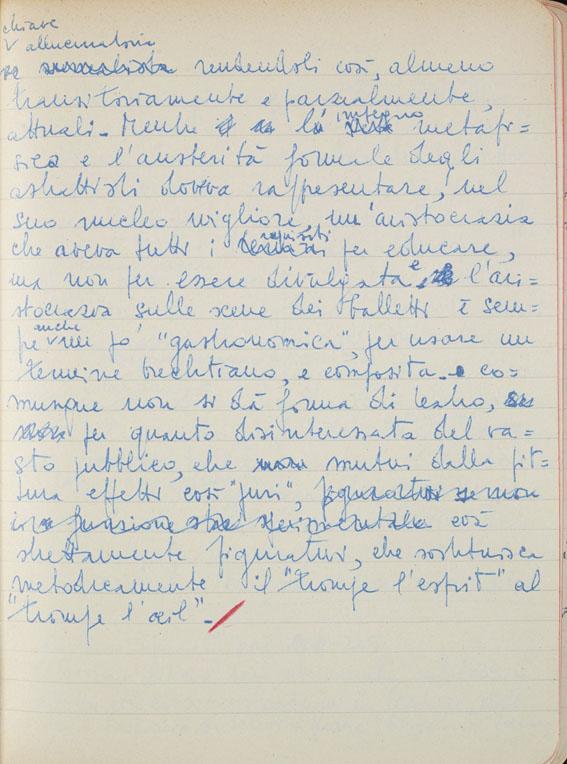 chiave
v allucinatoria
se surrealista rendendoli così, almeno
transitoriamente e parzialmente,
attuali. Mentre la impegno metafi=
sico e l'austerità formale degli
astrattisti doveva rappresentare, nel
suo nucleo migliore un'aristocrazia
che aveva tutti i requisiti per educare,
ma non per essere divulgata e l'ari-
stocrazia sulle scene dei balletti è sem=
pre anche un po' "gastronomica", per usare un
termine brechtiano, e composita. e co-
munque non si dà forma di teatro,
per quanto disinteressata del va-
sto pubblico, che mutui dalla pit=
tura effetti così "puri", figurativi se non
in funzione sperimentale così
strettamente figurativi, che sostituisca
metodicamente il "trompe l'esprit" al
"trompe l'œil".